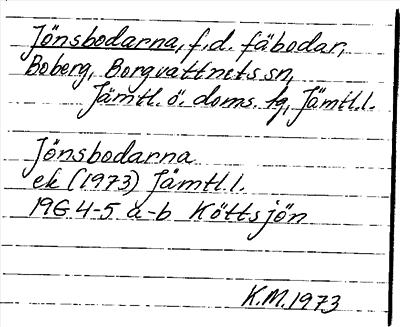 Jönsbodarna, f.d. fäbodar,
Boberg, Borgvattnets sn,
Jämtl. ö. doms. tg, Jämtl.l.
Jönsbodarna
ek (1973) Jämtl.l.
19G 4-5 a-b Köttsjön
K.M.1973